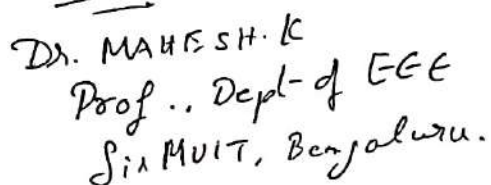 Dr. MAHESH. K
Prof., Dept of EEE
Sir MVIT, Bengaluru.